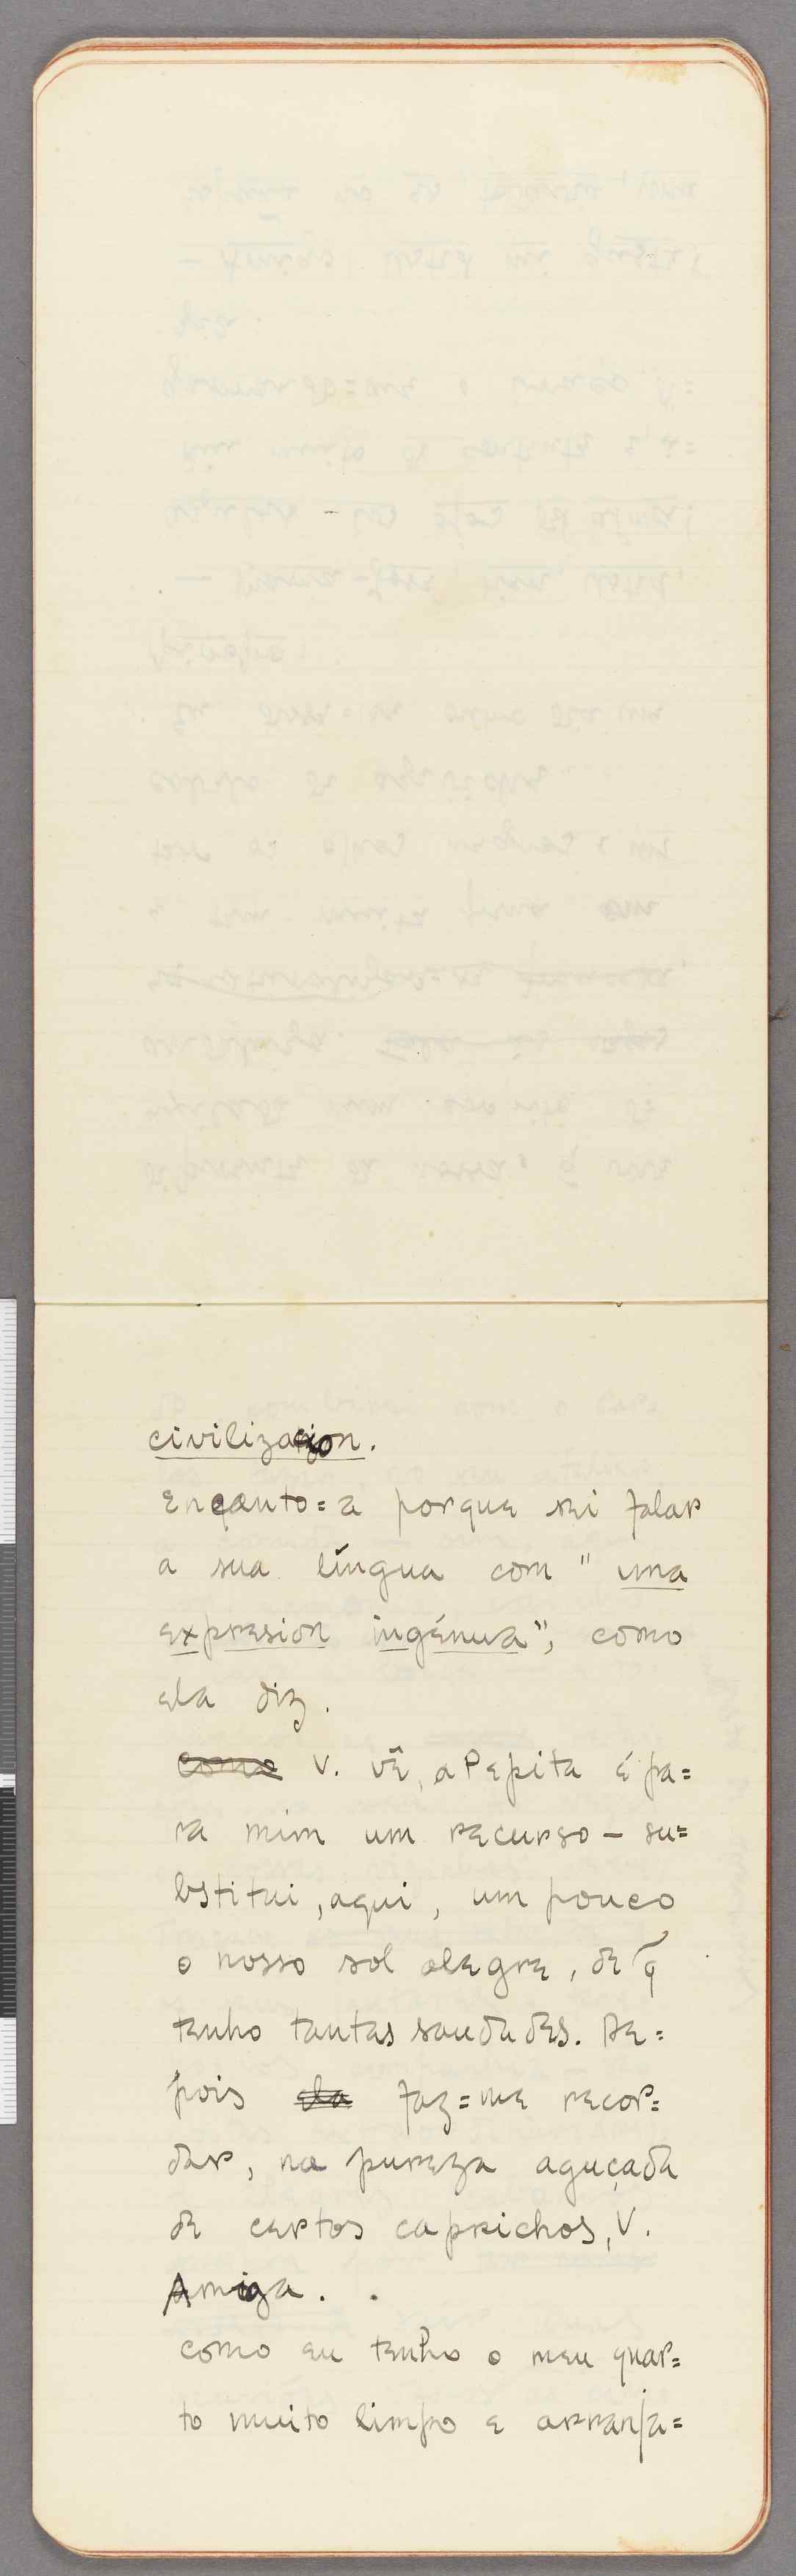 civilizacion.
Encanto=a porque sei falar
a sua língua com "uma
expresion ingénua", como
ela diz.
Como V. vê, a Pepita é pa=
ra mim um recurso — su=
bstitui, aqui, um pouco
o nosso sol alegre, de q̃
tenho tantas saudades. De=
pois ela faz=me recor=
dar, na pureza aguçada
de certos caprichos, V.
Amiga. .
Como eu tenho o meu quar=
to muito limpo e arranja=